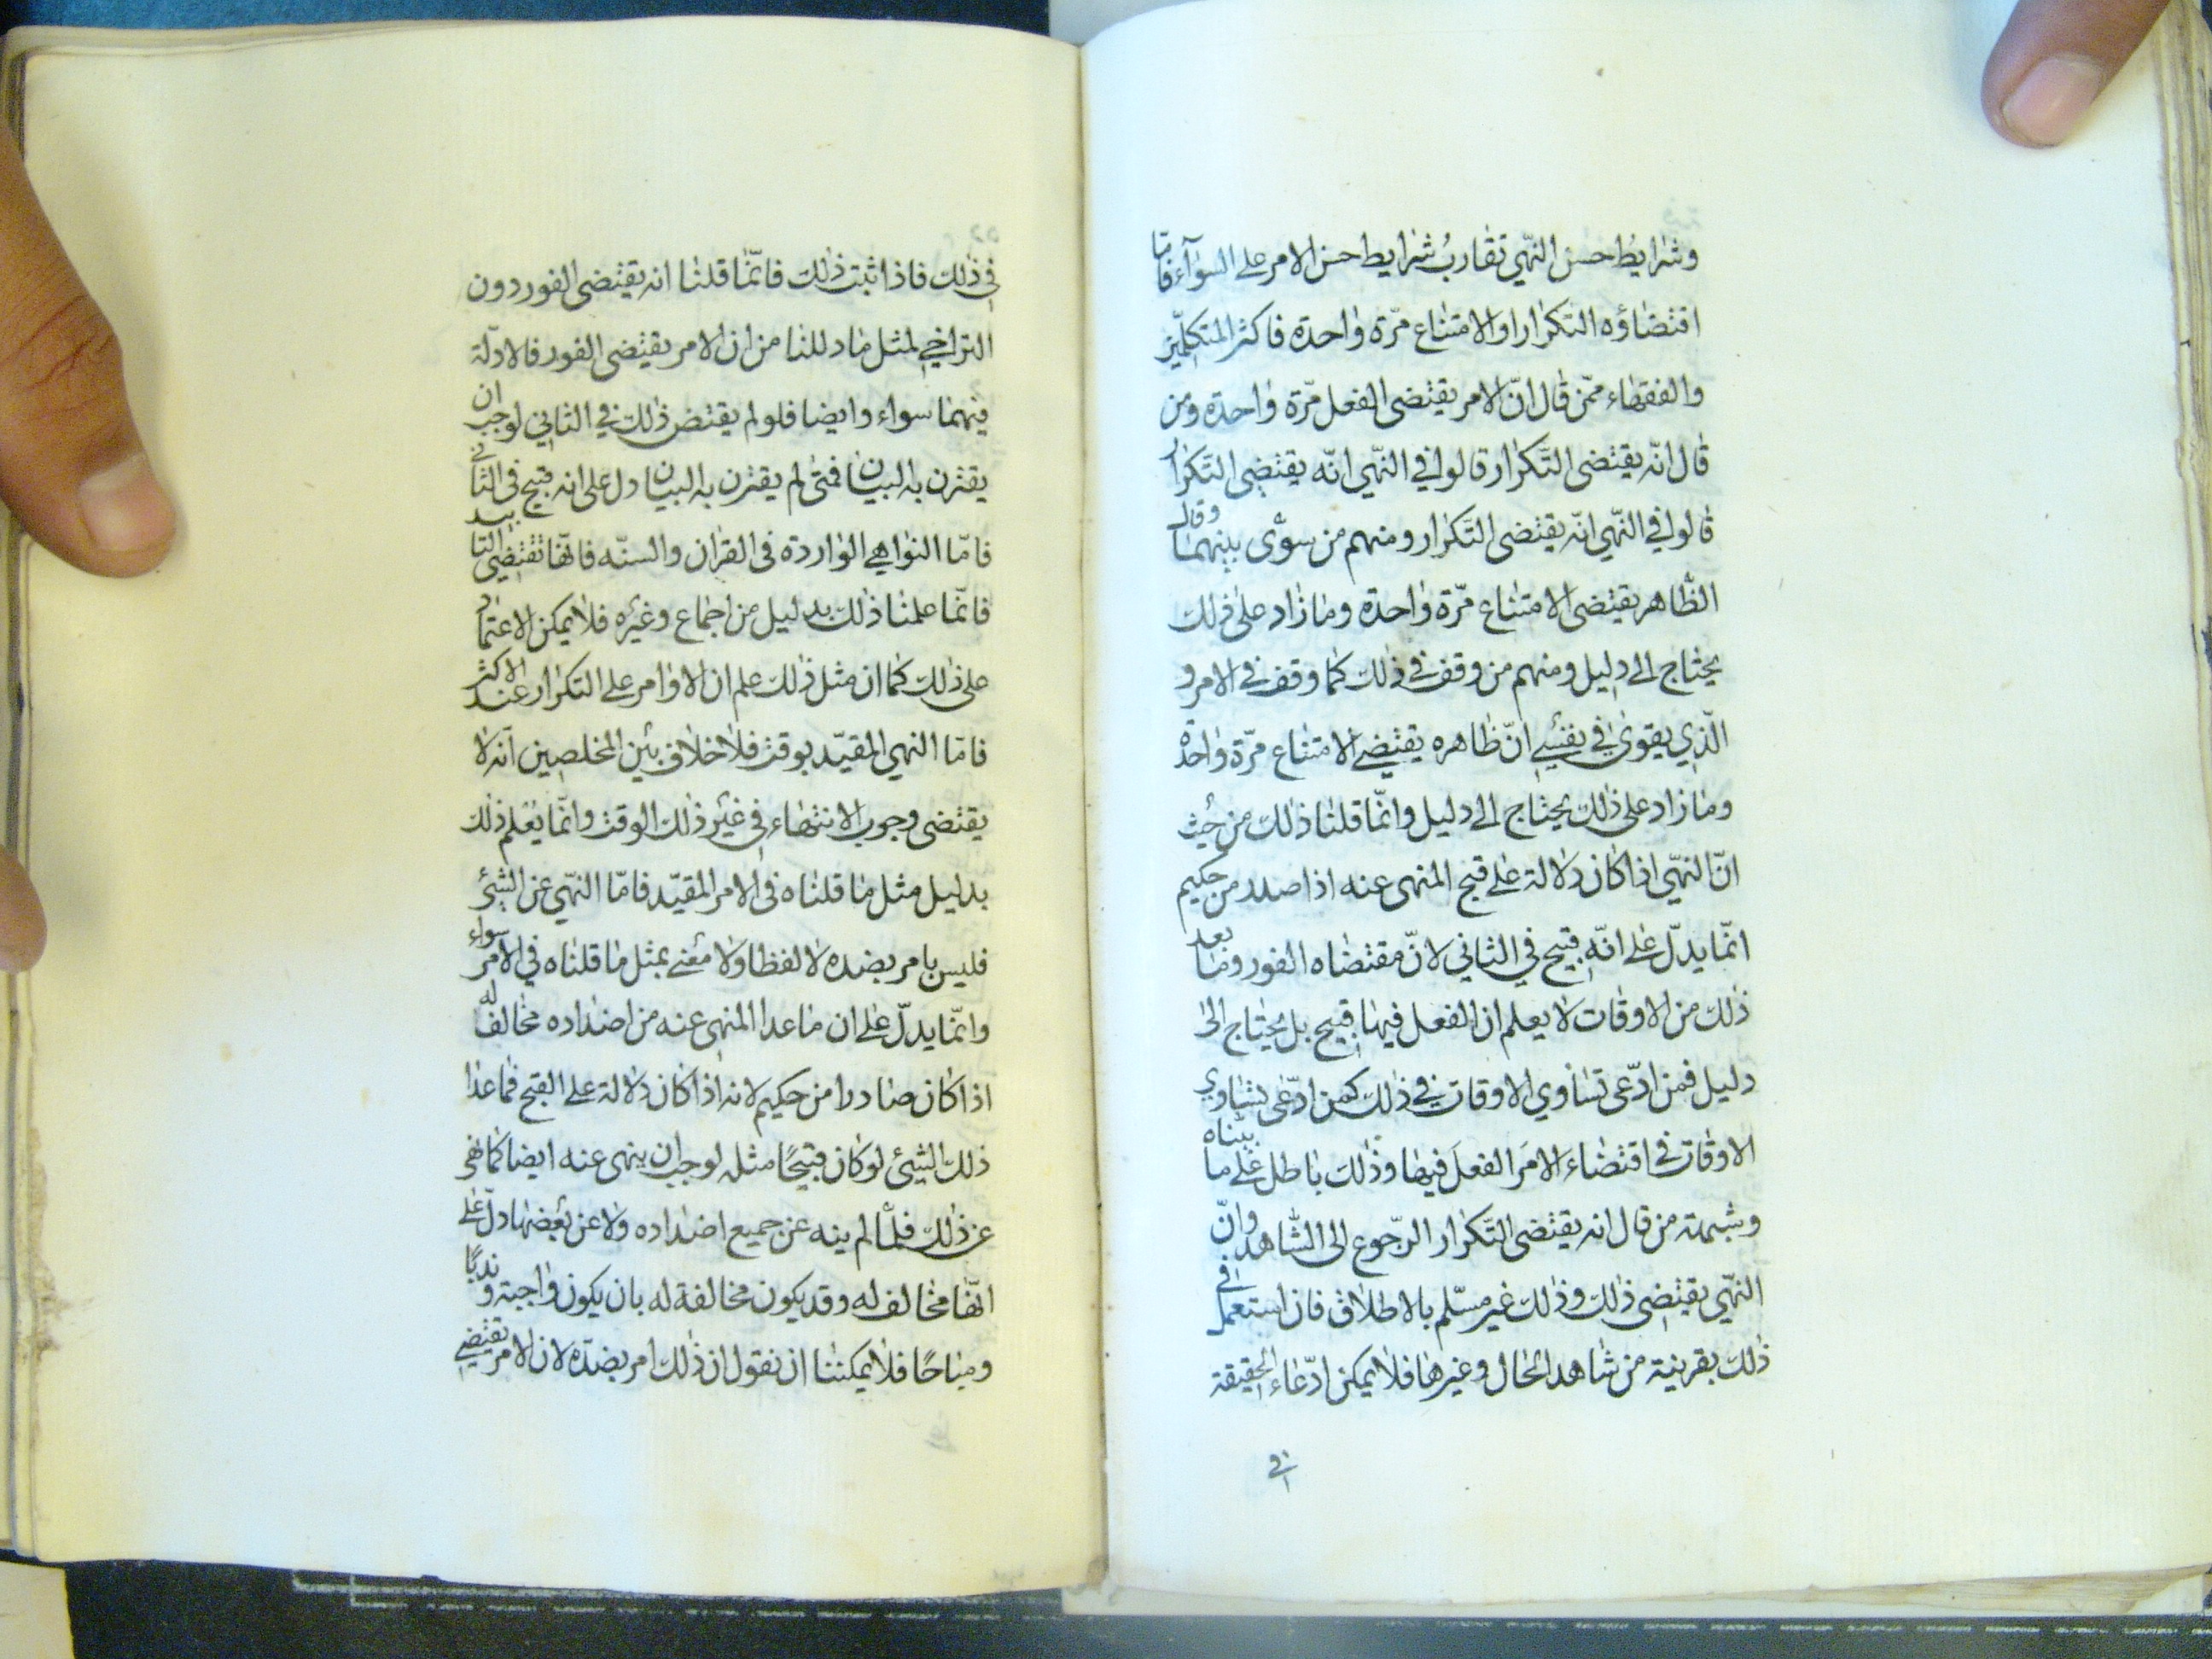 وشرايط حسن النّهي تقارب شرايط حسن الامر على السوآء فامّا
اقتضاؤه التكرار او الامتناع مرّة واحدة فاكثر المتكلّمين
والفقهاء ممّن قال انّ الامر يقتضى الفعل مرّة واحدة ومن
قال انّه يقتضى التّكرار قالوا في النّهي انّه يقتضى التّكرار
قالوا في النّهي انّه يقتضى التّكرار ومنهم من سوّى بينهما وقال
الظّاهر يقتضى الامتناع مرّة واحدة وما زاد على ذلك
يحتاج الى دليل ومنهم من وقف في ذلك كما وقف في الامر و
الّذي يقوى في نفسي انّ ظاهره يقتضي الامتناع مرّة واحدة
وما زاد على ذلك يحتاج الى دليل وانّما قلنا ذلك من حيث
انّ النّهي اذا كان دلالة على قبح المنهى عنه اذا صدر من حكيم
انّما يدلّ على انّه قبيح في الثاني لانّ مقتضاه الفور وما بعد
ذلك من الاوقات لا يعلم ان الفعل فيها قبيح بل يحتاج الى
دليل فمن ادّعى تساوي الاوقات في ذلك كمن ادّعى تساوي
الاوقات في اقتضاء الامر الفعل فيها وذلك باطل على ما بيّناه
وشبهة من قال انه يقتضى التّكرار الرّجوع الى الشّاهد وانّ
النّهي يقتضي ذلك وذلك غير مسلّم بالاطلاق فان استعمل في
ذلك بقرينة من شاهد الحال وغيرها فلا يمكن ادّعاء الحقيقة
في
في ذلك فاذا ثبت ذلك فانّما قلنا انه يقتضى الفور دون
التراخي لمثل ما دللنا من ان الامر يقتضى الفور فالادلّة
فيهما سواء وايضا فلو لم يقتض ذلك في الثاني لوجب ان
يقترن به البيان فمتى لم يقترن به البيان دل على انه قبيح فى الثاني
فامّا النواهي الواردة فى القران والسنّه فانّها تقتضي التابيد
فانّما علمنا ذلك بدليل من اجماع وغيره فلا يمكن الاعتماد
على ذلك كما ان مثل ذلك علم ان الاوامر على التكرار عند الاكثر
فامّا النهي المقيّد بوقت فلا خلاف بين المخلصين انه لا
يقتضى وجوب الانتهاء في غير ذلك الوقت وانّما يعلم ذلك
بدليل مثل ما قلناه فى الامر المقيّد فامّا النّهي عن الشئ
فليس بامر بضده لا لفظا ولا معنى بمثل ما قلناه في الامر سواء
وانّما يدلّ على ان ما عدا المنهى عنه من اضداده مخالف له
اذا كان صادرا من حكيم لانه اذا كان دلالة على القبح فما عدا
ذلك الشئ لو كان قبيحًا مثله لوجب ان ينهى عنه ايضا كما نهى
عن ذلك فلمّا لم ينه عن جميع اضداده ولا عن بعضها دلّ على
انّها مخالف له وقد يكون مخالفة له بان يكون واجبة و ندبًا
ومباحًا فلا يمكننا ان نقول ان ذلك امر بضدّه لان الامر يقتضي